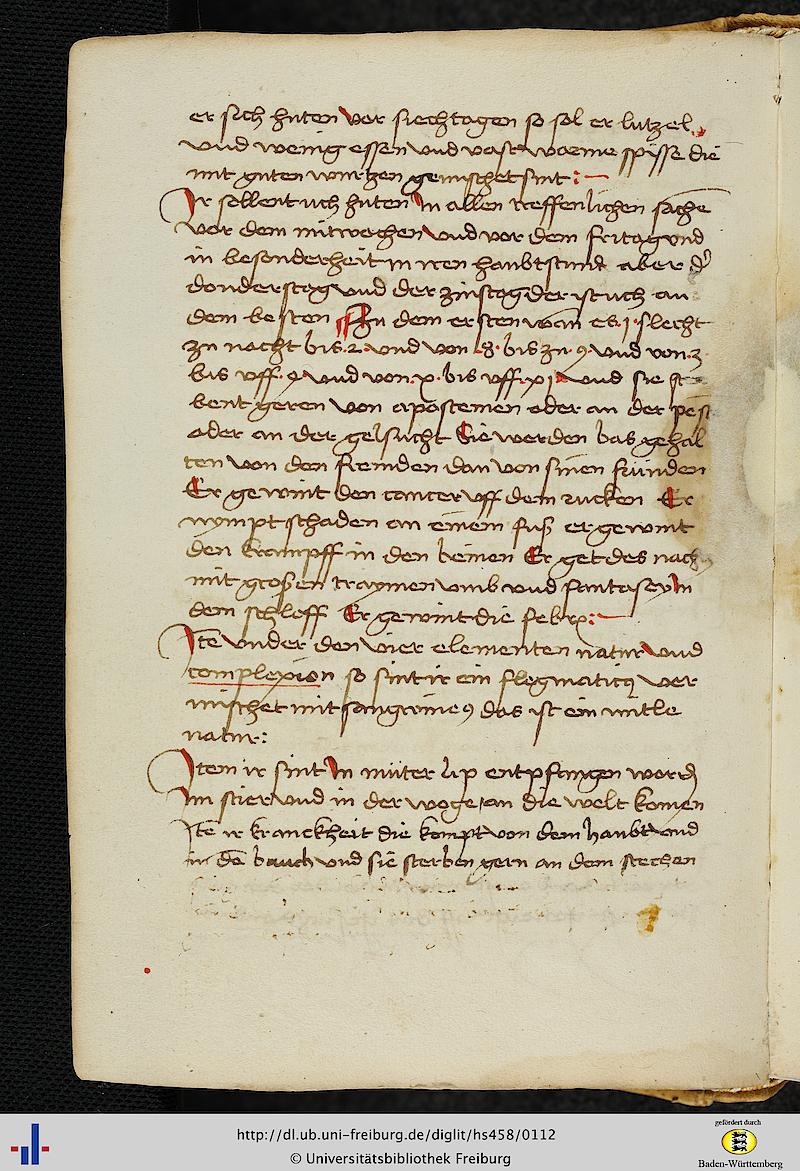 er sich huten vor siechtagen so sol er lutzel
vnd wenig essen vnd vast warme spisse die
mit guten wurtzen gemischet sint :~
Ir sollent uch huten In allen treffenlichen sache
vor dem mitwochen vnd vor dem fritag vnd
in besonderheit in iren haubtstund aber d'
donderstag vnd der zinstag der ist uch an
dem besten Zu dem ersten wan es .j. slecht
zu nacht bis .2. vnd von .8. bis zu .9. vnd von .3.
bis vff .9. vnd von .x. bis vff .xj. vnd sie ster
bent geren von apostemen oder an der pest
oder an der gelsucht Sie werden bas gehal
ten von den fremden dan von sinen frunden
Er gewint den cancer vff dem rucken Er
nympt schaden an einem fuß er gewint
den krampff in den beinen Er get des nachtz
mit großen traymen vmb vnd fantasey In
dem schleff Er gewint die febrz :~
Ite vnder den vier elementen natur vnd
complexion so sint ir ein flegmaticq ver
mischet mit sangwine9 das ist ein mitle
natur :
Item ir sint In muter lip entpfangen word
Im stier vnd in der woge an die welt komen
Ite ir kranckheit die kompt von dem haubt vnd
in de bauch vnd sie sterben gern an dem stechen
http://dl.ub.uni-freiburg.de/diglit/hs458/0112
© Universitätsbibliothek Freiburg
gefördert durch
Baden-Württemberg